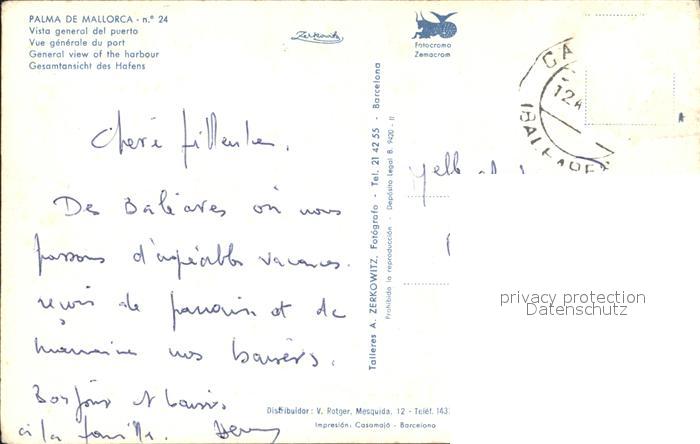 PALMA DE MALLORCA - n.º 24
Vista general del puerto
Vue générale du port
General view of the harbour
Gesamtansicht des Hafens
Zerkowitz
Fotocromo
Zemacrom
Chère filleule,
Des Baléares où nous
passons d'agréables vacances.
reçois de parrain et de
marraine nos baisers.
Bonjour et baisers
à la famille.
Talleres A. ZERKOWITZ, Fotógrafo - Tel. 21 42 55 - Barcelona
Prohibida la reproducción - Depósito Legal B. 9420 - II
Distribuidor: V. Rotger, Mesquida, 12 - Teléf. 143
Impresión. Casamajó - Barcelona
(BALEARES
privacy protection
Datenschutz